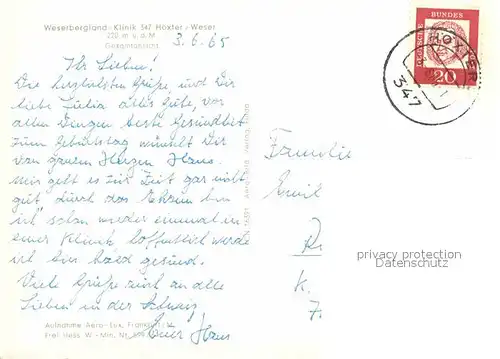 Weserbergland-Klinik 347 Höxter/Weser
220 m ü. d. M
Gesamtansicht
3.6.65
Ihr Lieben!
Die herzlichsten Grüße, und Dir
liebe alles Gute, vor
allen Dingen beste Gesundheit
zum Geburtstag wünscht Dir
von ganzem Herzen Hans.
Mir geht es zur Zeit gar nicht
gut, durch das
ich schon wieder einmal in
einer Klinik. Hoffentlich werde
ich bald gesund.
Viele Grüße an alle
Lieben in der Schweiz
Euer Hans
Aufnahme Aero-Lux, Frankfurt/M.
Freig. Hess. W.-Min. Nr.
DEUTSCHE
BUNDES
20
HÖXTER
347
Familie
Emil
K.
privacy protection
Datenschutz